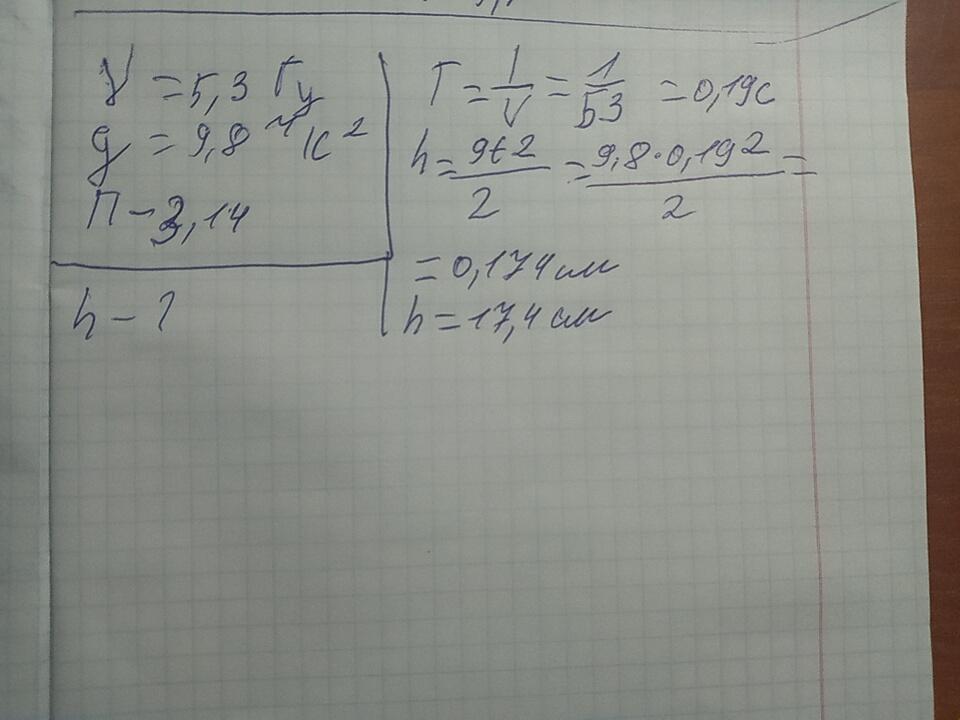 ν = 5,3 Гц
g = 9,8 м/с²
П – 3,14
h – ?
T = 1/ν = 1/53 = 0,19с
h = gt2/2 = 9,8·0,19²/2 =
= 0,174см
h = 17,4см